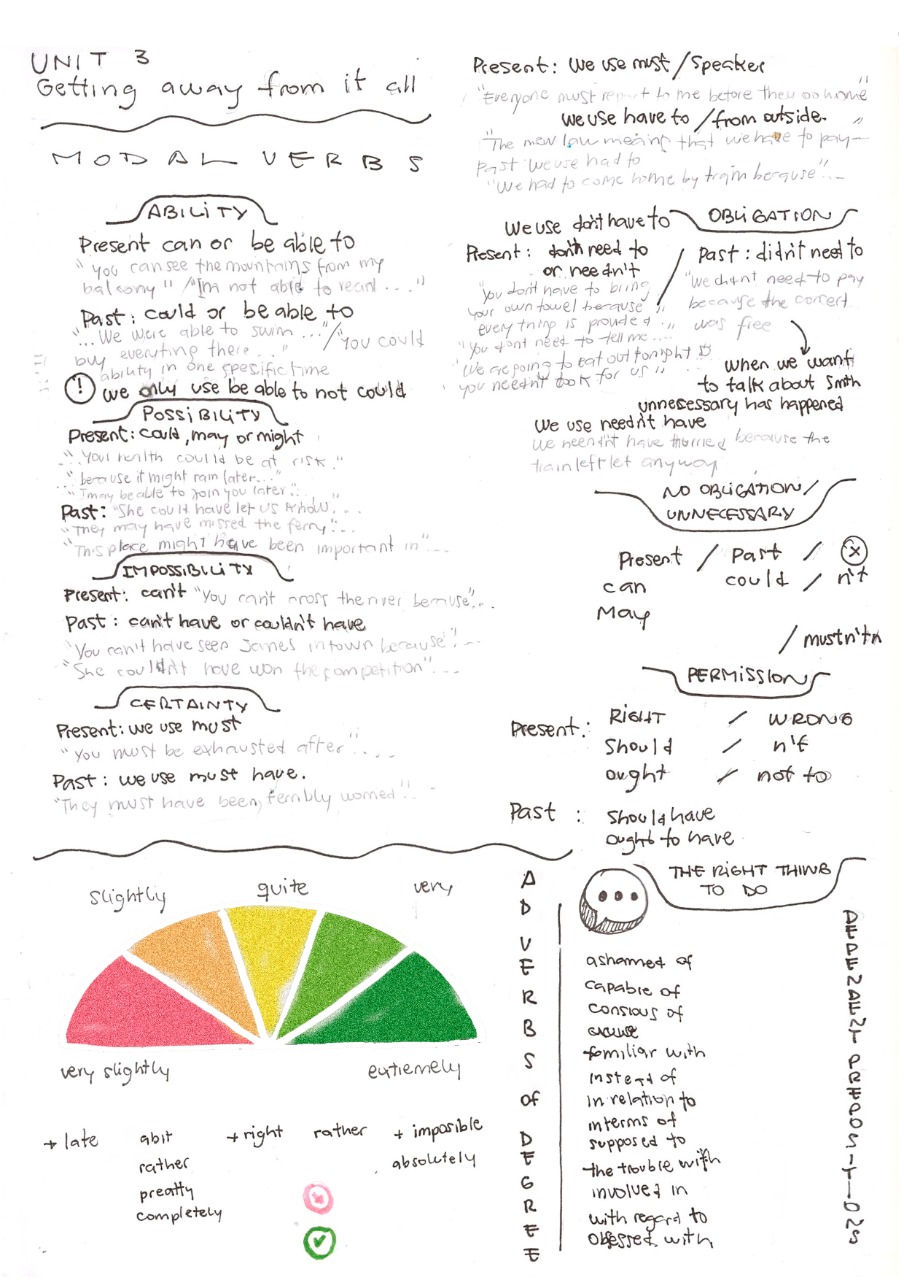 UNIT 3
Getting away from it all
MODAL VERBS
ABILITY
Present can or be able to
"You can see the mountains from my
balcony" / "I'm not able to reani...."
Past: could or be able to
"...We were able to swim..." / "You could
buy everything there..."
ability in one spesific time
! we only use be able to not could
POSSIBILITY
Present: could, may or might
"..Your health could be at risk."
"because it might rain later..."
"I may be able to join you later"...
Past: "She could have let us know...
"They may have missed the ferry"...
"This place might have been important in"...
IMPOSSIBILITY
Present: can't "You can't cross the river because"...
Past: can't have or couldn't have
"You can't have seen James in town because"...
"She couldn't have won the competition"...
CERTAINTY
Present: we use must
"You must be exhausted after"....
Past: we use must have.
"They must have been, terribly worried"...
Present: We use must / speaker
"Everyone must report to me before they go home"
we use have to / from outside.
"The new law meaning that we have to pay–"
Past we use had to
"We had to come home by train because"....
OBLIGATION
We use don't have to
Present: don't need to
or needn't
"You don't have to bring
your own towel because
every thing is provided..."
"You don't need to tell me...
We are going to eat out tonight so
you needn't cook for us"
/ Past: didn't need to
"We didn't need to pay
because the concert
was free
when we want
to talk about smth
unnecessary has happened
We use needn't have
We needn't have hurried because the
train left let anyway
NO OBLIGATION/
UNNECESSARY
Present / Past / x
can could / n't
May
/ mustn't
PERMISSION
Present: RIGHT / WRONG
Should / n't
ought / not to
Past: should have
ought to have
THE RIGHT THING
TO DO
slightly quite very
very slightly extremely
+ late abit + right rather + imposible
rather absolutely
preatty
completely
ADVERBS OF DEGREE
ashamed of
capable of
consious of
familiar with
instead of
in relation to
interms of
supposed to
the trouble with
involved in
with regard to
obsessed with
DEPENDENT PREPOSITIONS